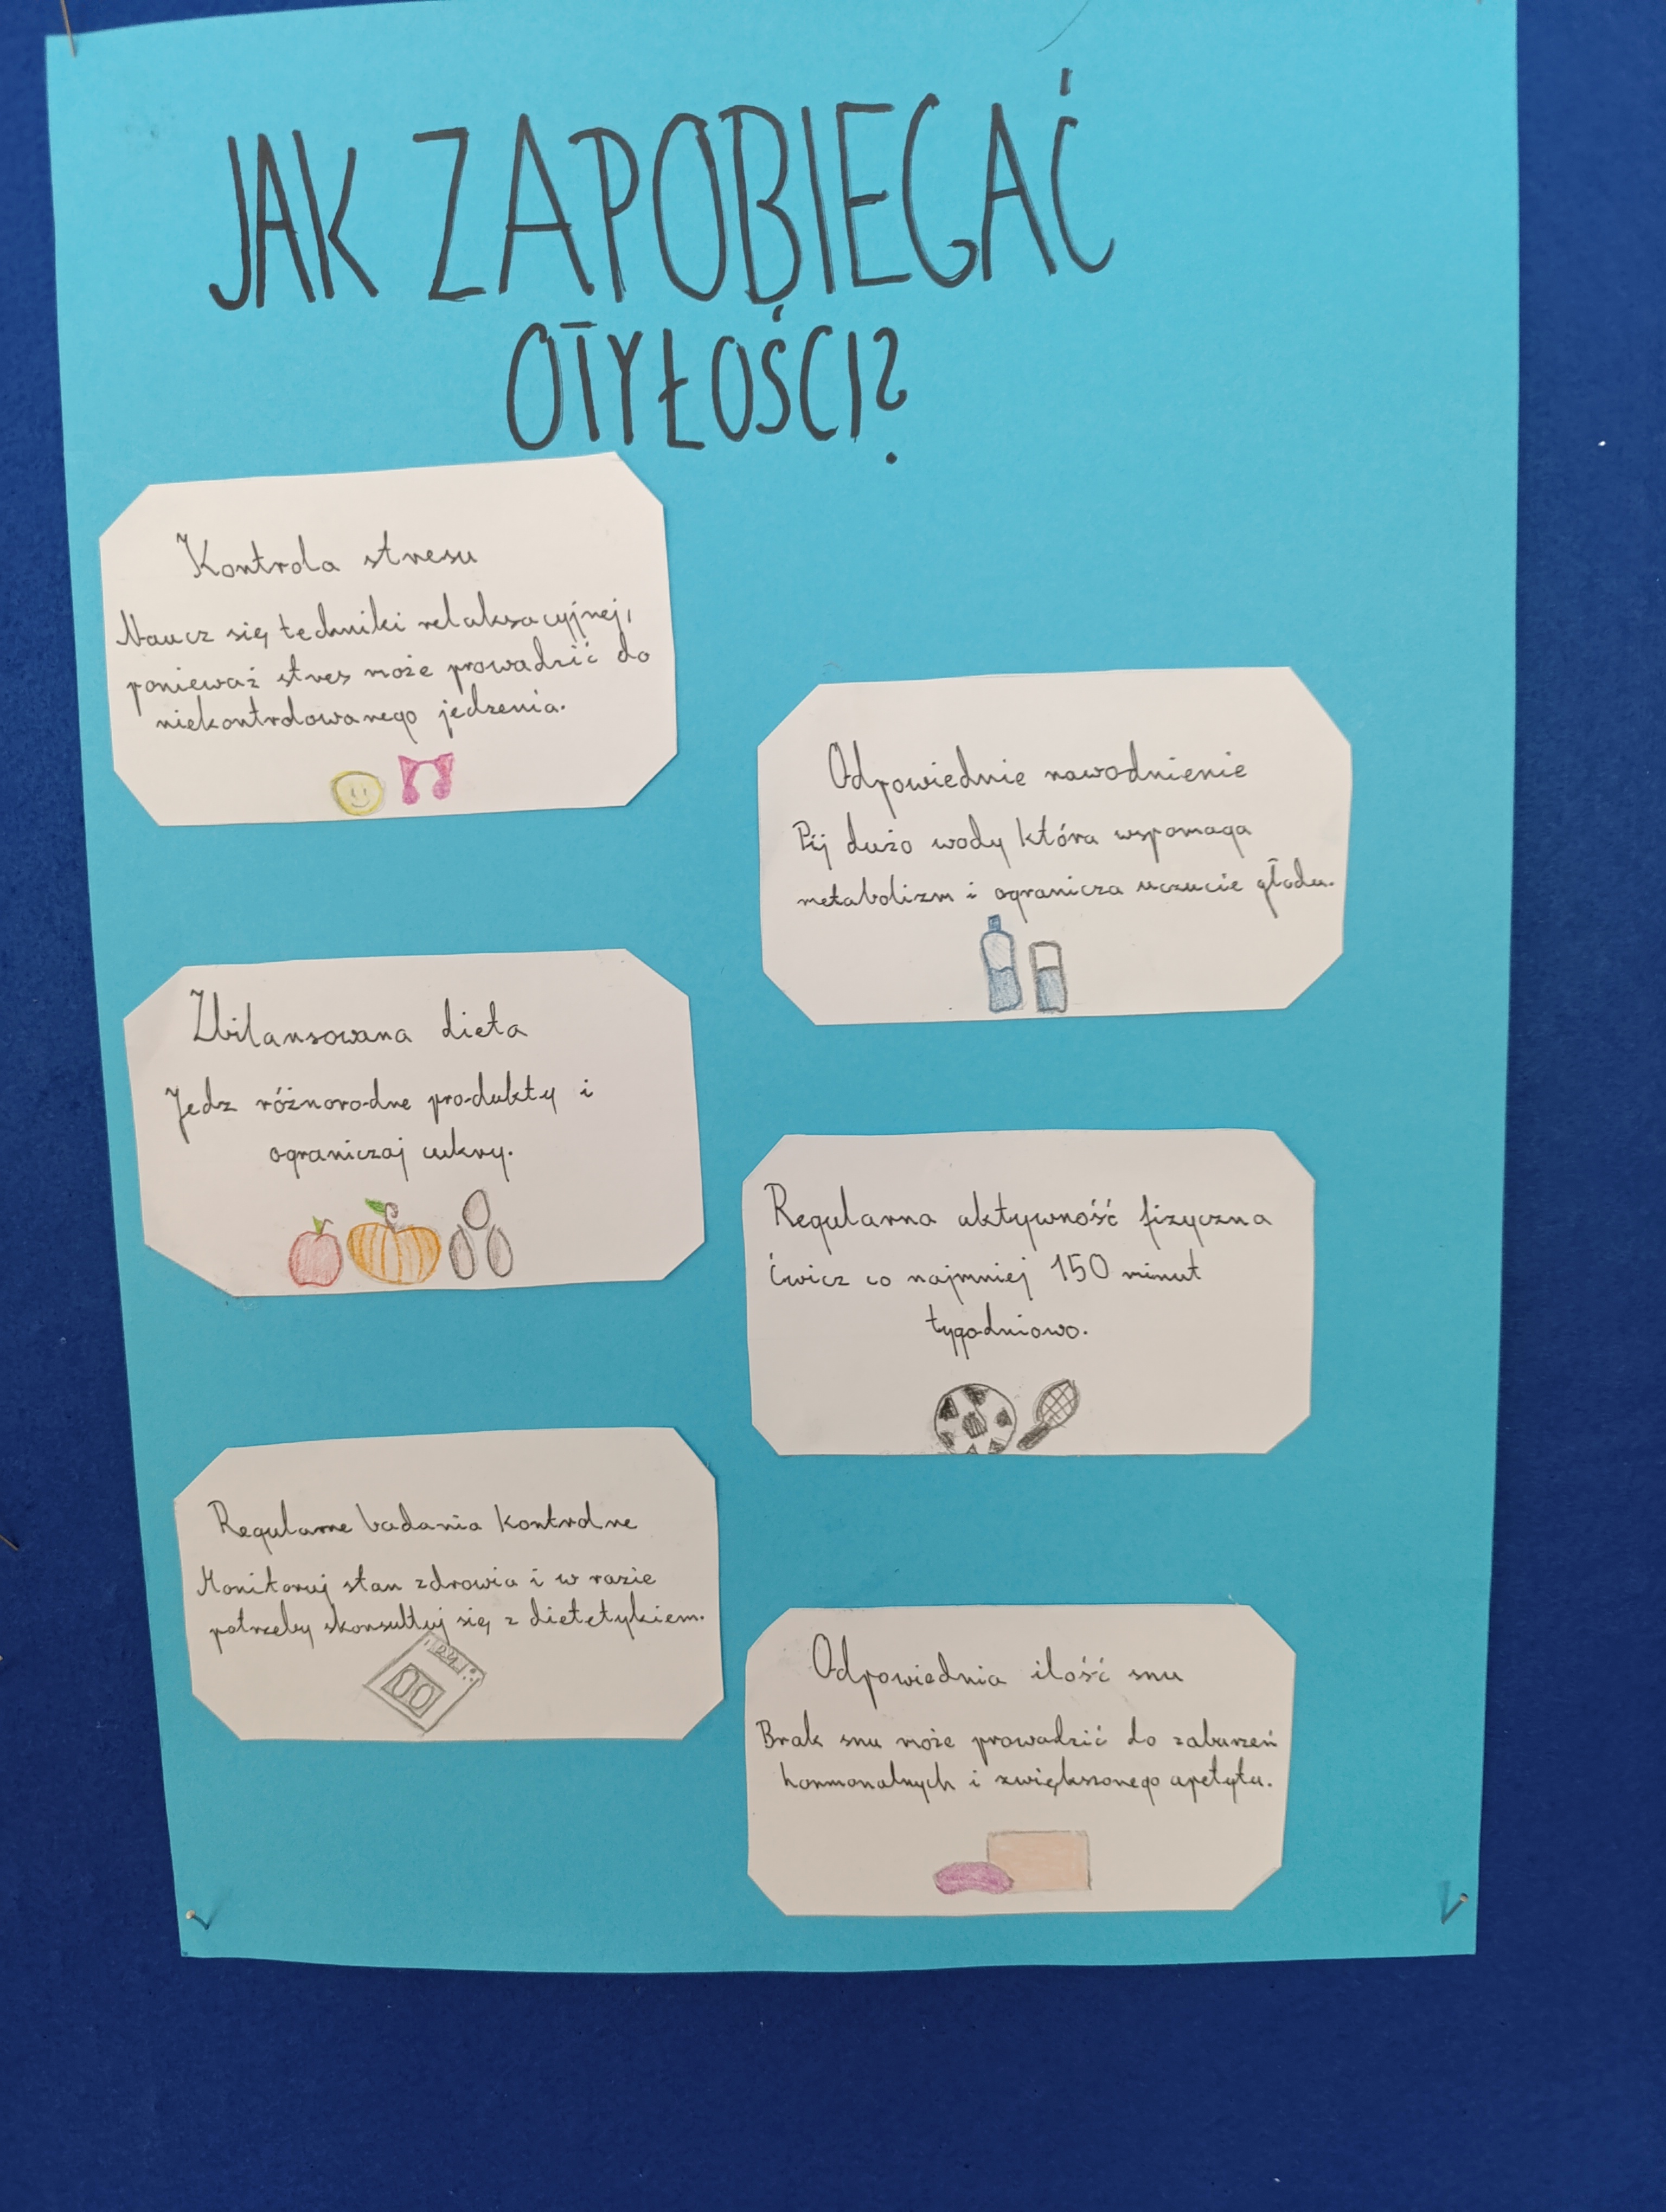 JAK ZAPOBIEGAĆ
OTYŁOŚCI?
Kontrola stresu
Naucz się techniki relaksacyjnej,
ponieważ stres może prowadzić do
niekontrolowanego jedzenia.
Odpowiednie nawodnienie
Pij dużo wody która wspomaga
metabolizm i ogranicza uczucie głodu.
Zbilansowana dieta
Jedz różnorodne produkty i
ograniczaj cukry.
Regularna aktywność fizyczna
Ćwicz co najmniej 150 minut
tygodniowo.
Regularne badania kontrolne
Monitoruj stan zdrowia i w razie
potrzeby skonsultuj się z dietetykiem.
Odpowiednia ilość snu
Brak snu może prowadzić do zaburzeń
hormonalnych i zwiększonego apetytu.